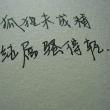 狐狸未成精
纯属骚得轻.